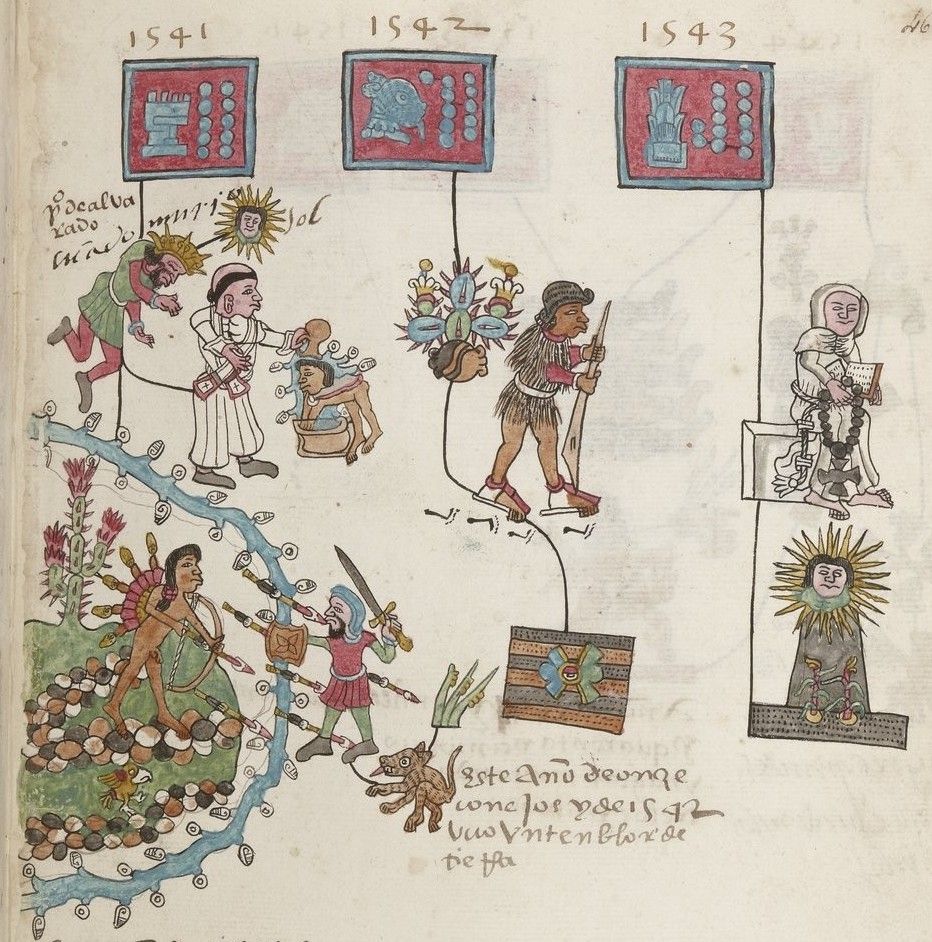 1541 1542 1543
46
po de alva
rado
murio
sol
este Año de onze
conejos y de 1542
vuo vn tenblor de
tierra